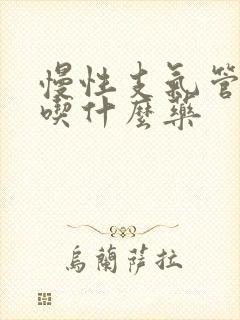 慢性支氣管
喫什麼藥
烏蘭薩拉